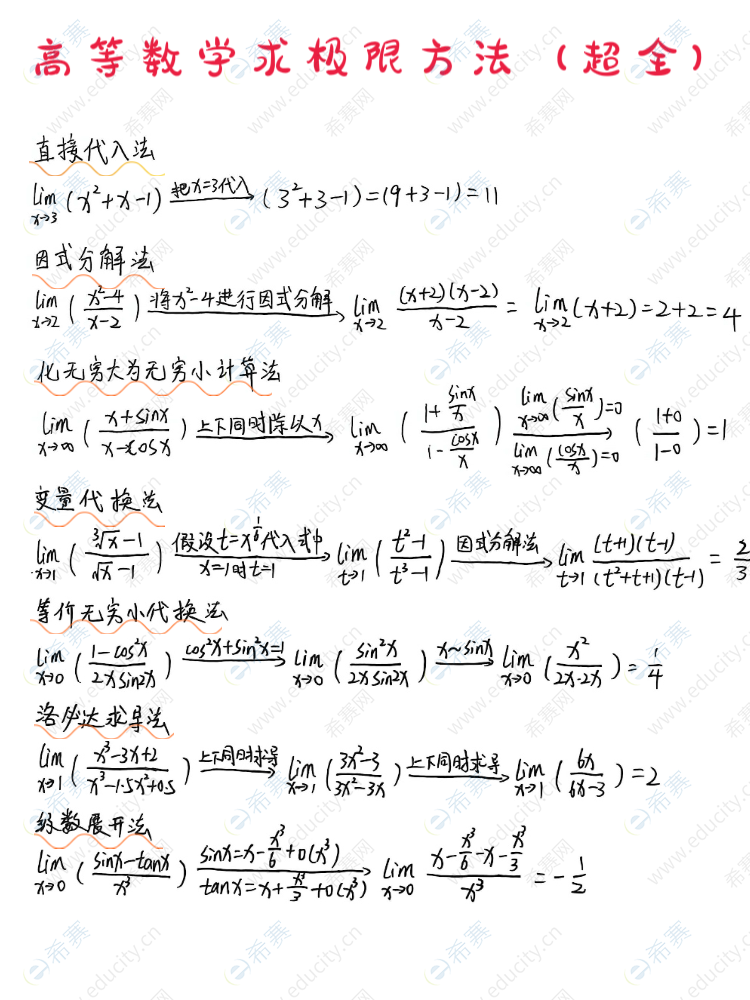 高等数学求极限方法（超全）
直接代入法
lim x→3 (x²+x-1) 把x=3代入→ (3²+3-1)=(9+3-1)=11
因式分解法
lim x→2 ((x²-4)/(x-2)) 将x²-4进行因式分解→ lim x→2 ((x+2)(x-2))/(x-2) = lim x→2 (x+2)=2+2=4
化无穷大为无穷小计算法
lim x→∞ ((x+sinx)/(x-cosx)) 上下同时除以x→ lim x→∞ ((1+sinx/x)/(1-cosx/x)) lim x→∞ (sinx/x)=0 lim x→∞ (cosx/x)=0→ ((1+0)/(1-0))=1
变量代换法
lim x→1 ((∛x-1)/(√x-1)) 假设t=x^(1/6)代入式中 x=1时t=1→ lim t→1 ((t²-1)/(t³-1)) 因式分解法→ lim t→1 ((t+1)(t-1))/((t²+t+1)(t-1)) = 2/3
等价无穷小代换法
lim x→0 ((1-cos²x)/(2x sin2x)) cos²x+sin²x=1→ lim x→0 (sin²x/(2x sin2x)) x~sinx→ lim x→0 (x²/(2x·2x))=1/4
洛必达求导法
lim x→1 ((x³-3x+2)/(x³-1.5x²+0.5)) 上下同时求导→ lim x→1 ((3x²-3)/(3x²-3x)) 上下同时求导→ lim x→1 (6x/(6x-3))=2
级数展开法
lim x→0 ((sinx-tanx)/x³) sinx=x-x³/6+o(x³) tanx=x+x³/3+o(x³)→ lim x→0 (x-x³/6-x-x³/3)/x³ =-1/2
希赛
www.educity.cn
希赛网